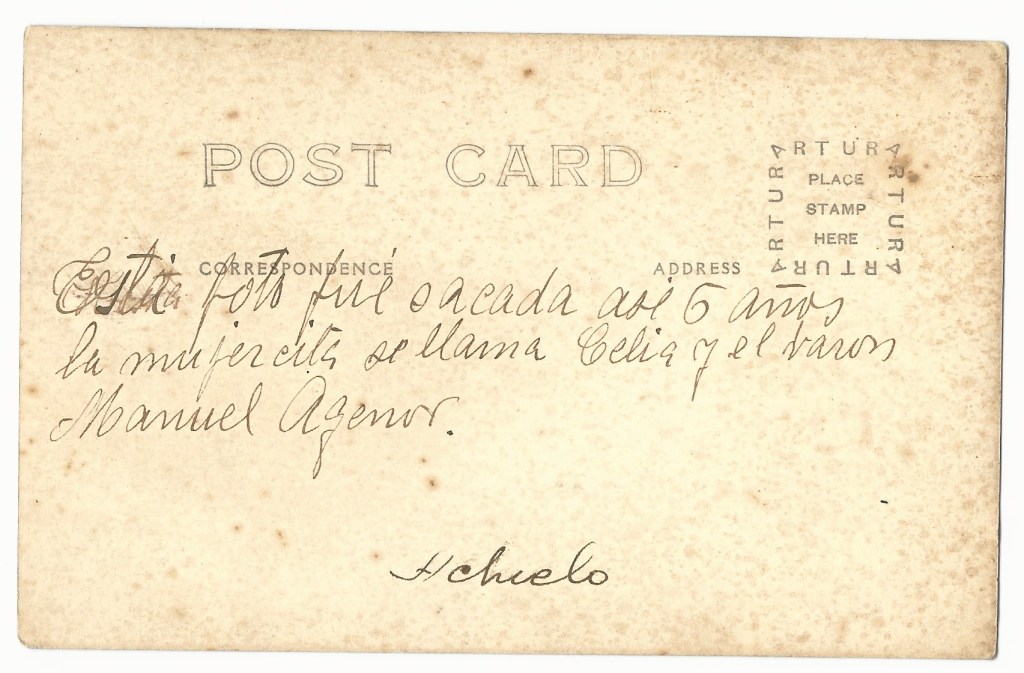 POST CARD
ARTURA
ARTURA
ARTURA
ARTURA
PLACE
STAMP
HERE
CORRESPONDENCE
ADDRESS
Esta foto fué sacada asé 5 años
la mujercita se llama Celia y el varon
Manuel Agenor.